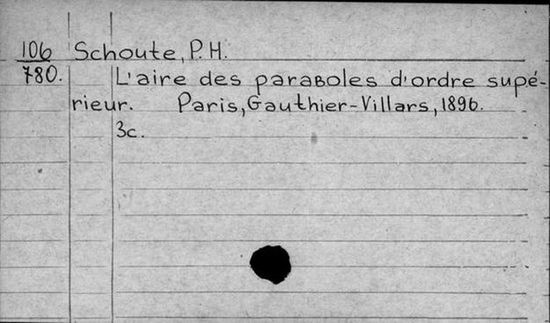 106 Schoute, P.H.
780. L'aire des paraboles d'ordre supé-
rieur. Paris, Gauthier-Villars, 1896.
3c.